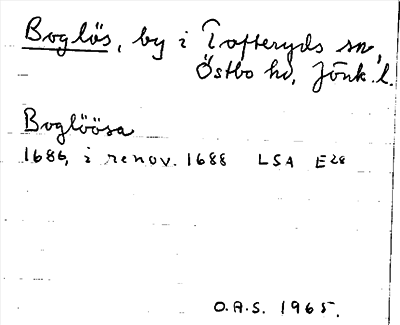 Boglös, by i Tofteryds sn,
Östbo hd, Jönk. l.
Boglöösa
1686, i renov. 1688 LSA E28
O.A.S. 1965.